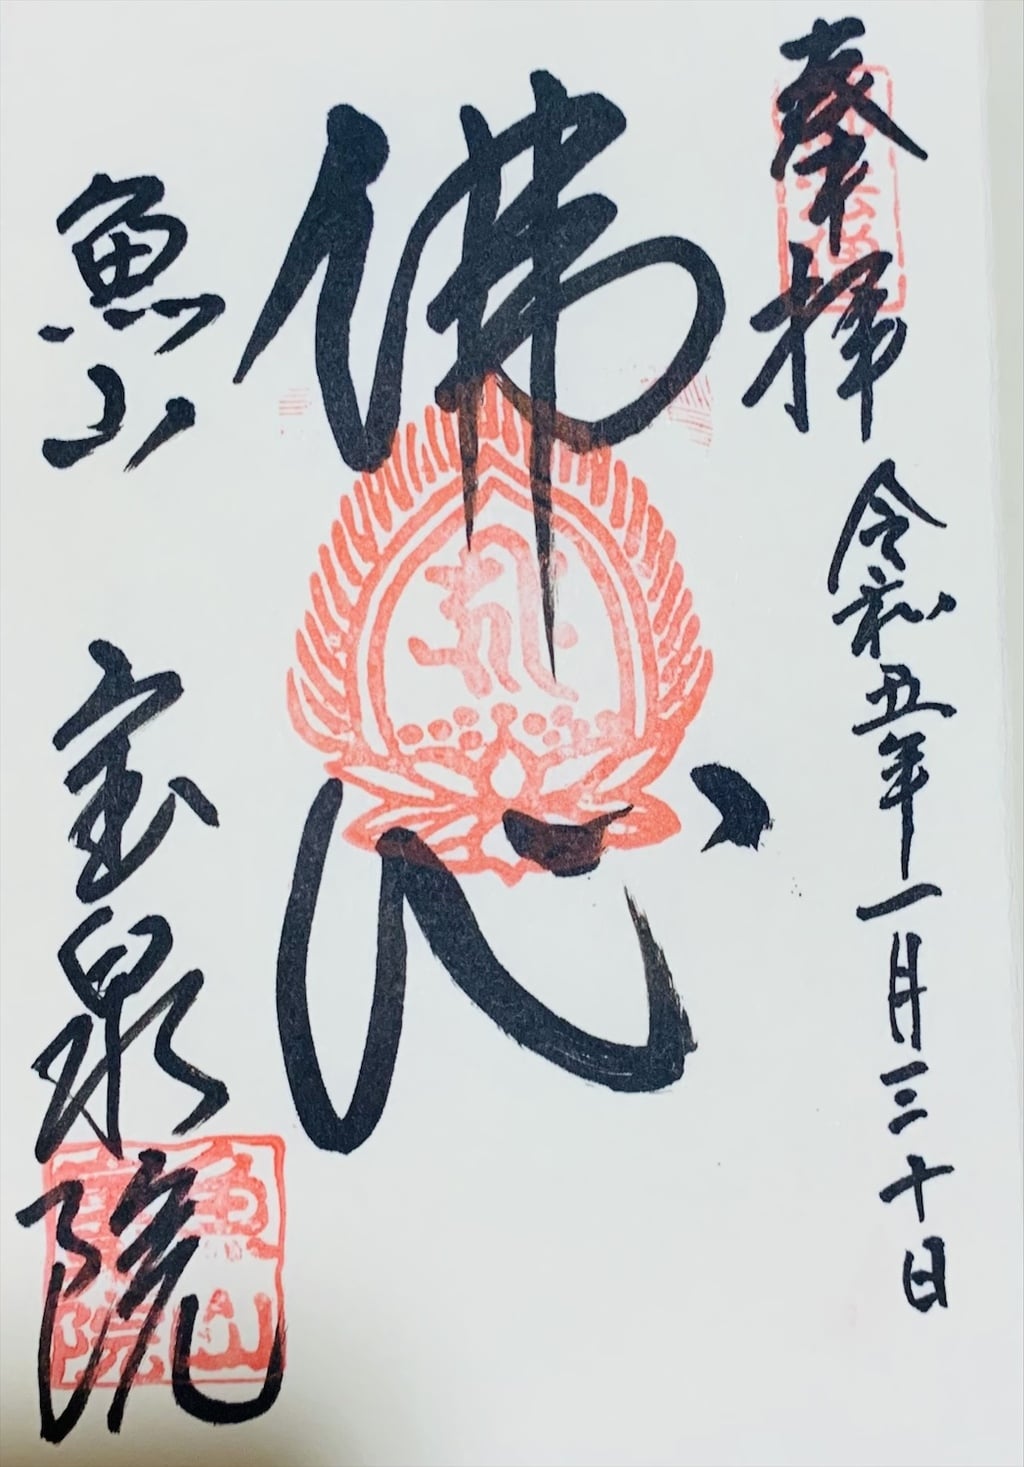 奉拝
令和五年一月三十日
佛心
魚山
宝泉院
魚山
宝泉院